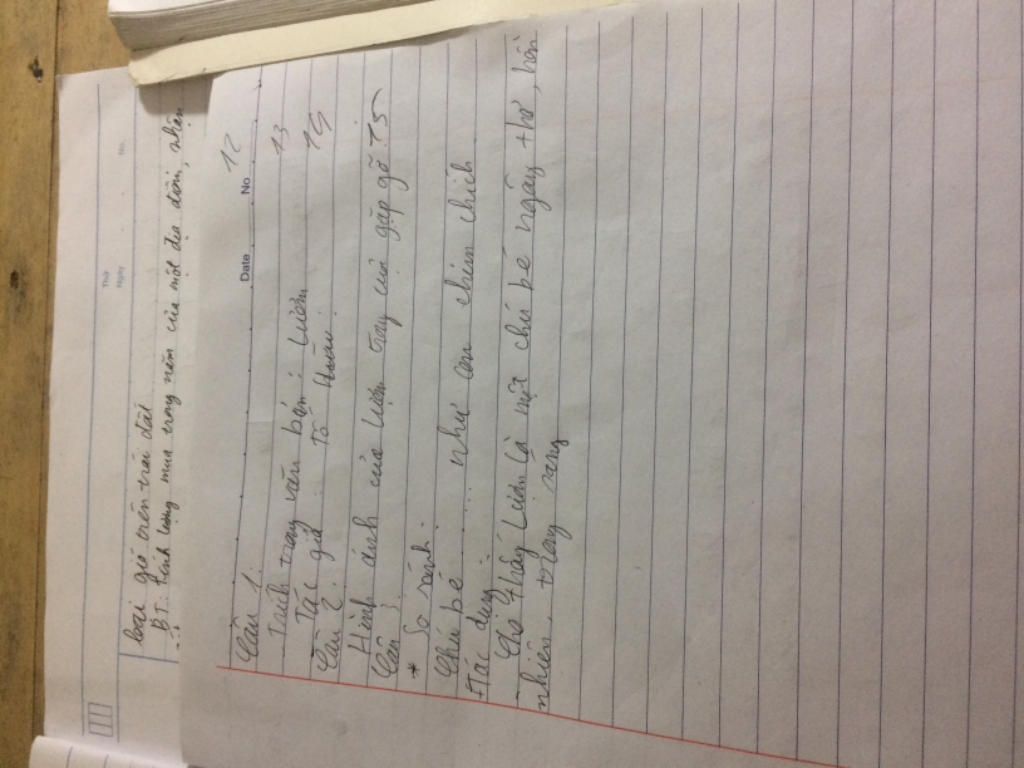 Thứ
Ngày No.
loại gió trên trái đất
BT: tính lượng mưa trong năm của một địa điểm, nhận
Date No
12
Câu 1:
Trích trong văn bản: Lượm 13
Tác giả: Tố Hữu. 14
Câu 2:
Hình ảnh của Lượm trong cuộc gặp gỡ. T5
Câu 3
* So sánh:
Chú bé .... như con chim chích
+Tác dụng:
Cho thấy Lượm là một chú bé ngây thơ, hồn
nhiên, trong sáng